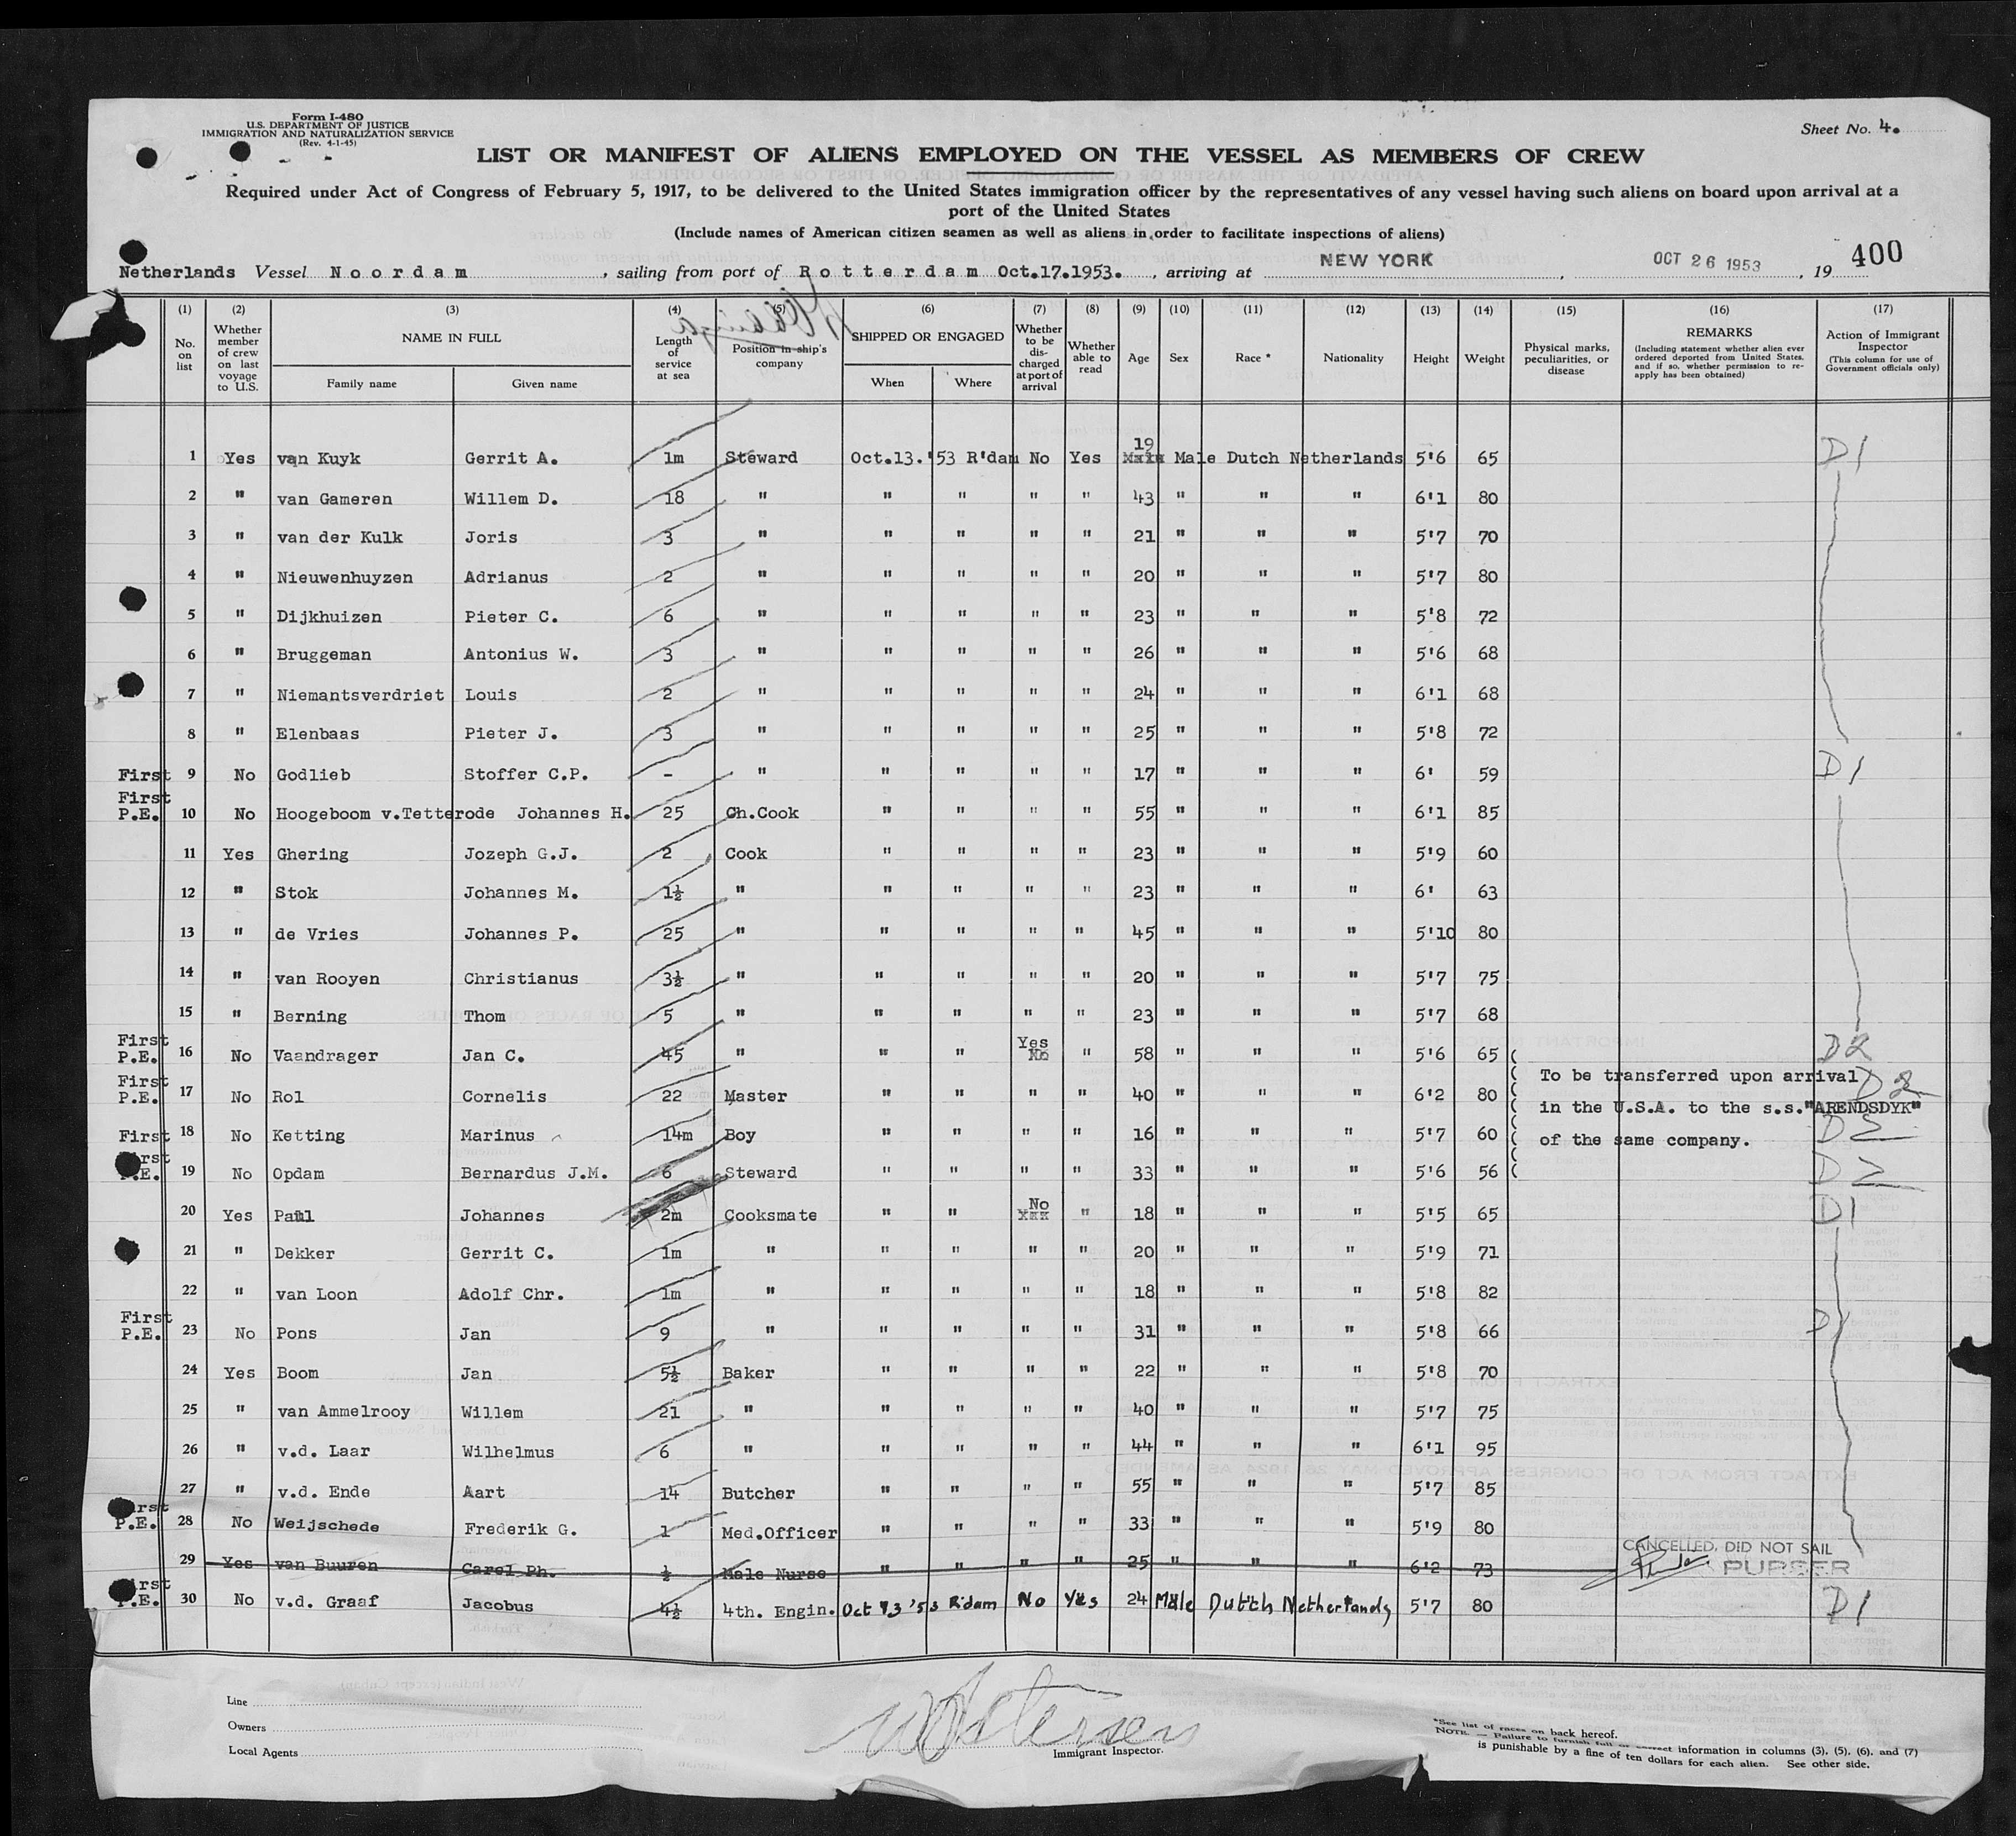 Form I-480
U.S. DEPARTMENT OF JUSTICE
IMMIGRATION AND NATURALIZATION SERVICE
(Rev. 4-1-45)
Sheet No. 4.
LIST OR MANIFEST OF ALIENS EMPLOYED ON THE VESSEL AS MEMBERS OF CREW
Required under Act of Congress of February 5, 1917, to be delivered to the United States immigration officer by the representatives of any vessel having such aliens on board upon arrival at a
port of the United States
(Include names of American citizen seamen as well as aliens in order to facilitate inspections of aliens)
Netherlands Vessel Noordam, sailing from port of Rotterdam Oct.17.1953., arriving at NEW YORK, OCT 26 1953, 19 400
(1) No. on list (2) Whether member of crew on last voyage to U.S. (3) NAME IN FULL Family name Given name (4) Length of service at sea (5) Position in ship's company (6) SHIPPED OR ENGAGED When Where (7) Whether to be discharged at port of arrival (8) Whether able to read (9) Age (10) Sex (11) Race * (12) Nationality (13) Height (14) Weight (15) Physical marks, peculiarities, or disease (16) REMARKS (Including statement whether alien ever ordered deported from United States, and if so, whether permission to re-apply has been obtained) (17) Action of Immigrant Inspector (This column for use of Government officials only)
1 Yes van Kuyk Gerrit A. 1m Steward Oct.13.'53 R'dam No Yes 19 Male Dutch Netherlands 5'6 65 D1
2 " van Gameren Willem D. 18 " " " " " 43 " " " 6'1 80
3 " van der Kulk Joris 3 " " " " " 21 " " " 5'7 70
4 " Nieuwenhuyzen Adrianus 2 " " " " " 20 " " " 5'7 80
5 " Dijkhuizen Pieter C. 6 " " " " " 23 " " " 5'8 72
6 " Bruggeman Antonius W. 3 " " " " " 26 " " " 5'6 68
7 " Niemantsverdriet Louis 2 " " " " " 24 " " " 6'1 68
8 " Elenbaas Pieter J. 3 " " " " " 25 " " " 5'8 72
First 9 No Godlieb Stoffer C.P. - " " " " " 17 " " " 6' 59 D1
First P.E. 10 No Hoogeboom v.Tetterode Johannes H. 25 Ch.Cook " " " " 55 " " " 6'1 85
11 Yes Ghering Jozeph G.J. 2 Cook " " " " 23 " " " 5'9 60
12 " Stok Johannes M. 1½ " " " " " 23 " " " 6' 63
13 " de Vries Johannes P. 25 " " " " " 45 " " " 5'10 80
14 " van Rooyen Christianus 3½ " " " " " 20 " " " 5'7 75
15 " Berning Thom 5 " " " " " 23 " " " 5'7 68
First P.E. 16 No Vaandrager Jan C. 45 " " " Yes " 58 " " " 5'6 65 ( D2
First P.E. 17 No Rol Cornelis 22 Master " " " " 40 " " " 6'2 80 ( To be transferred upon arrival D2
in the U.S.A. to the s.s."ARENDSDYK"
First 18 No Ketting Marinus 14m Boy " " " " 16 " " " 5'7 60 ( of the same company. D2
First P.E. 19 No Opdam Bernardus J.M. 6 Steward " " " " 33 " " " 5'6 56 ( D2
20 Yes Paul Johannes 2m Cooksmate " " No " 18 " " " 5'5 65 D1
21 " Dekker Gerrit C. 1m " " " " " 20 " " " 5'9 71
22 " van Loon Adolf Chr. 1m " " " " " 18 " " " 5'8 82
First P.E. 23 No Pons Jan 9 " " " " " 31 " " " 5'8 66 D1
24 Yes Boom Jan 5½ Baker " " " " 22 " " " 5'8 70
25 " van Ammelrooy Willem 21 " " " " " 40 " " " 5'7 75
26 " v.d. Laar Wilhelmus 6 " " " " " 44 " " " 6'1 95
27 " v.d. Ende Aart 14 Butcher " " " " 55 " " " 5'7 85
First P.E. 28 No Weijschede Frederik G. 1 Med.Officer " " " " 33 " " " 5'9 80
29 Yes van Buuren Carel Ph. ½ Male Nurse " " " " 25 " " " 6'2 73 CANCELLED, DID NOT SAIL PURSER
First P.E. 30 No v.d. Graaf Jacobus 4½ 4th. Engin. Oct 13 '53 R'dam No Yes 24 Male Dutch Netherlands 5'7 80 D1
Line
Owners
Local Agents
Immigrant Inspector.
*See list of races on back hereof.
NOTE. — Failure to furnish full or correct information in columns (3), (5), (6), and (7)
is punishable by a fine of ten dollars for each alien. See other side.